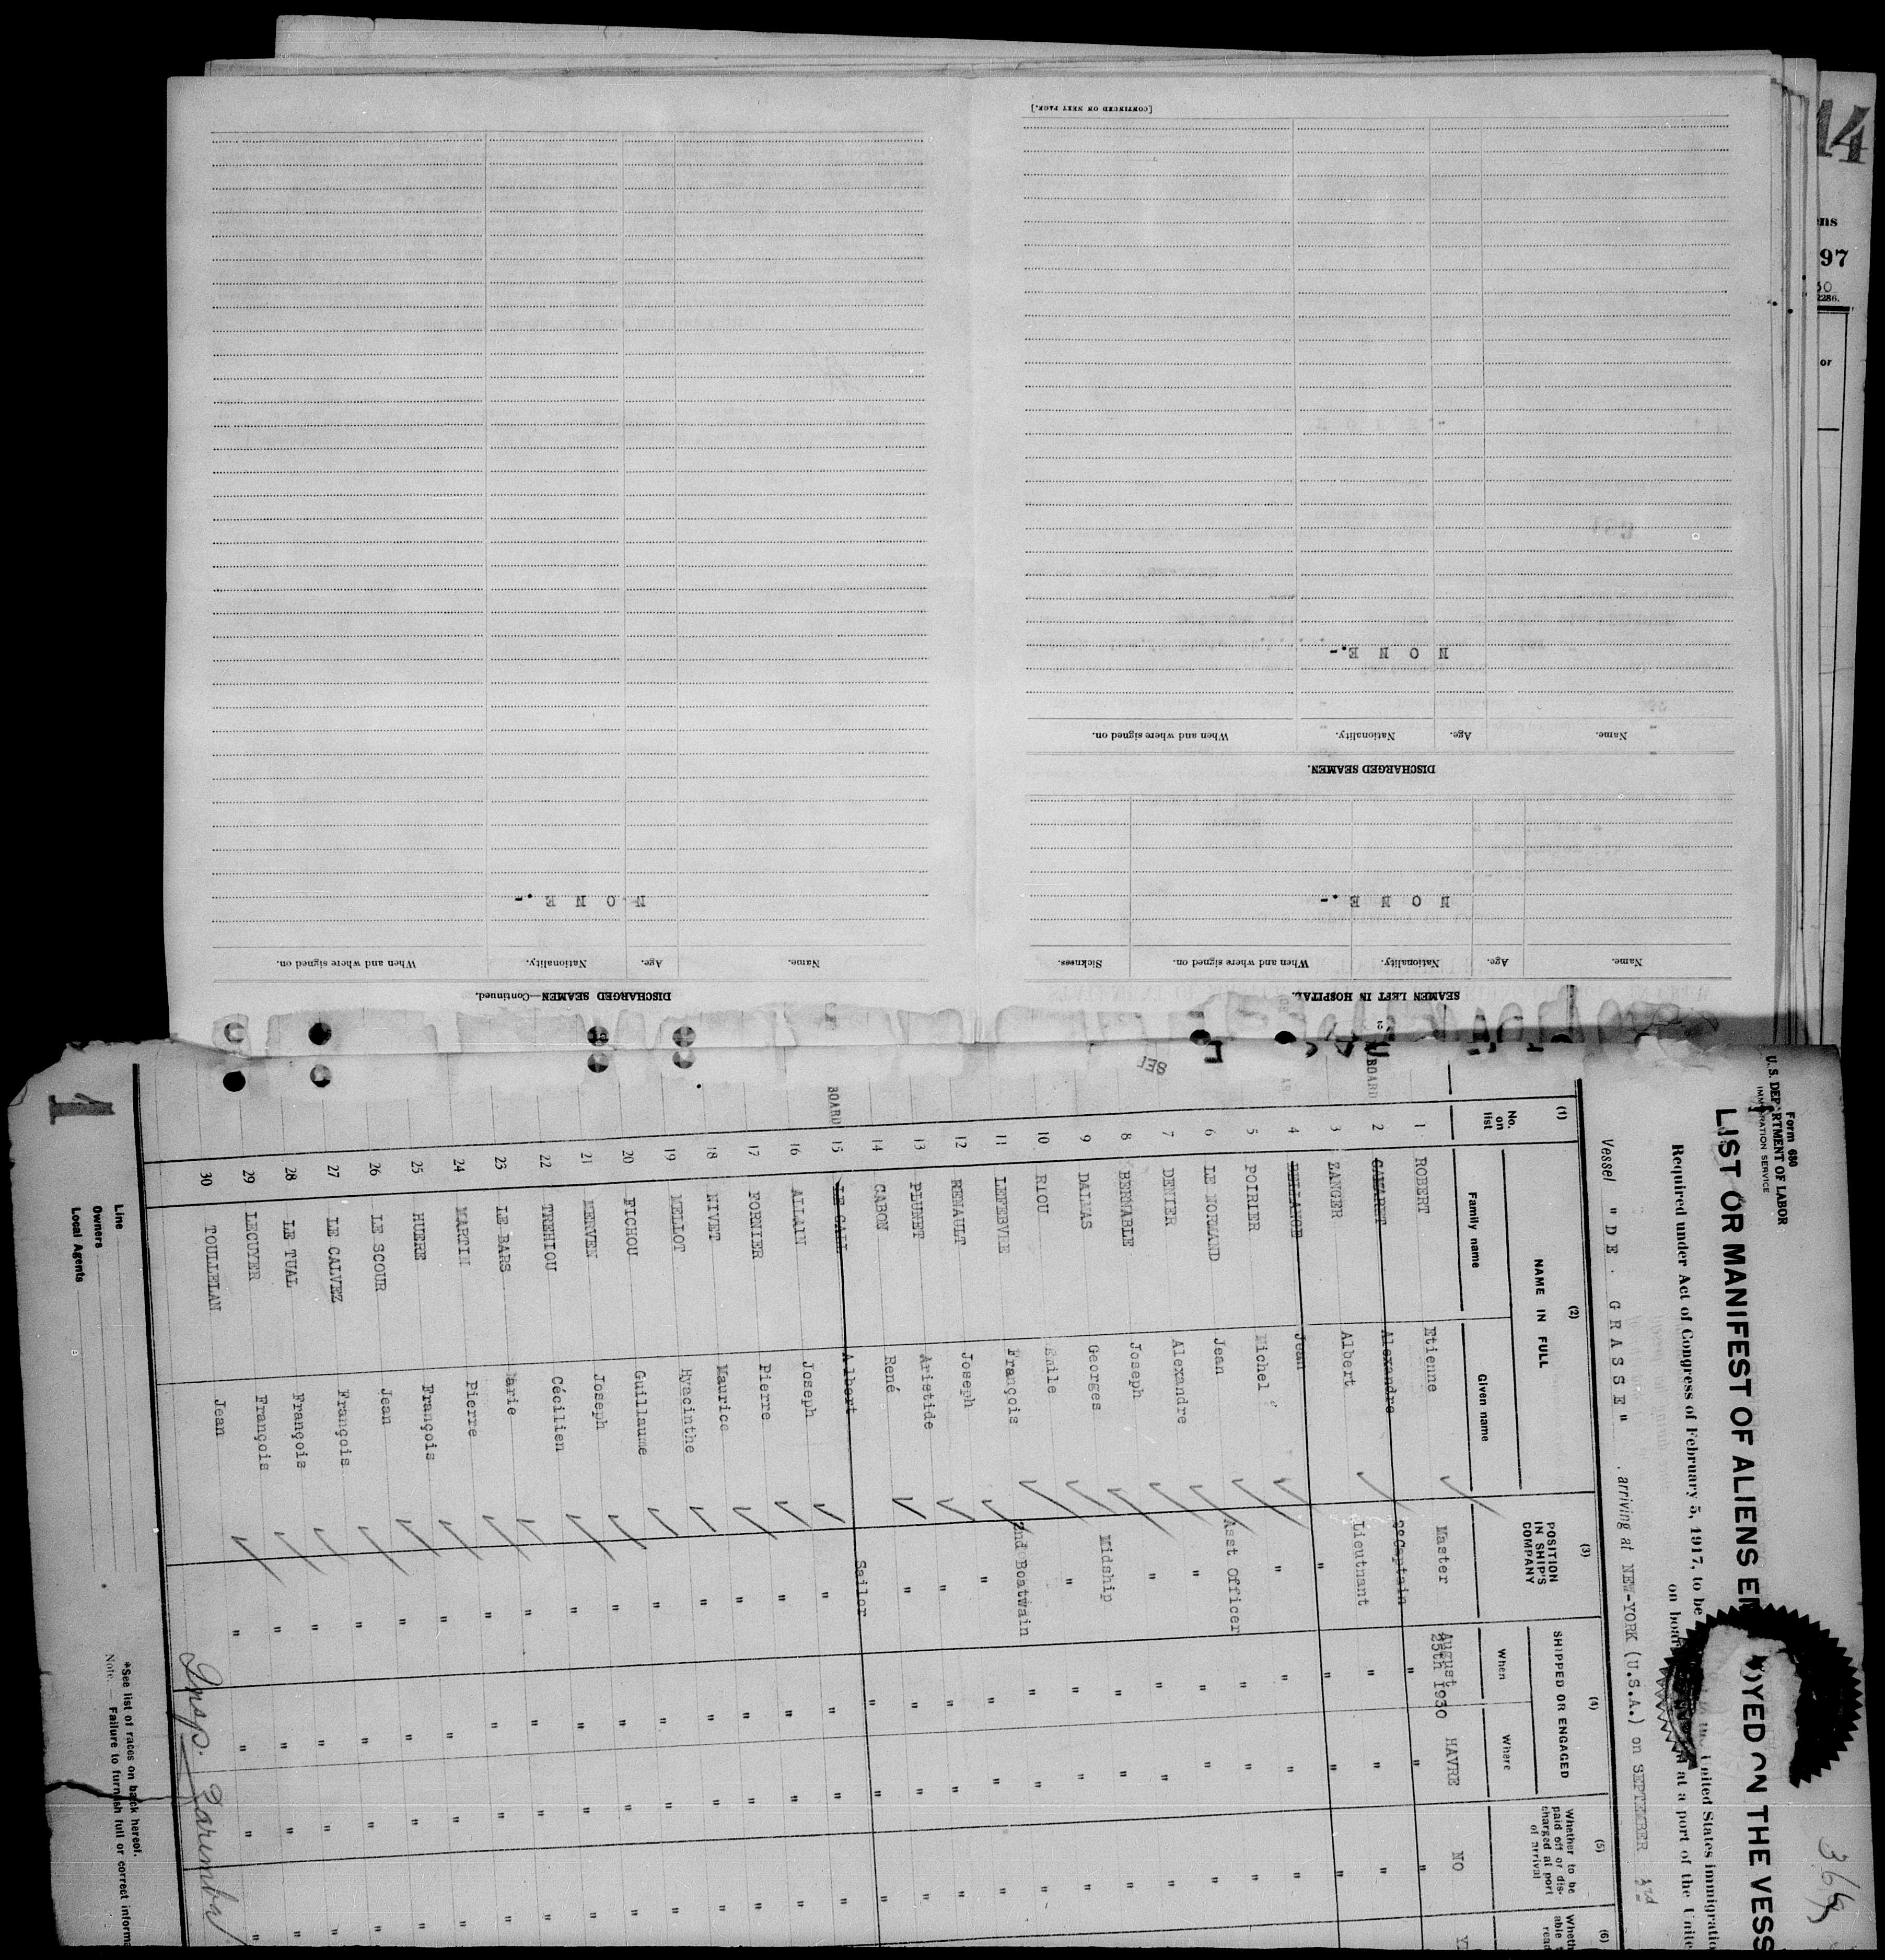 14
ns
97
30
2286.
or
[CONTINUED ON NEXT PAGE.]
SEAMEN LEFT IN HOSPITAL.
Name. Age. Nationality. When and where signed on. Sickness.
N O N E .-
DISCHARGED SEAMEN.
Name. Age. Nationality. When and where signed on.
N O N E .-
DISCHARGED SEAMEN—Continued.
Name. Age. Nationality. When and where signed on.
N O N E .-
Form 680
U. S. DEPARTMENT OF LABOR
IMMIGRATION SERVICE
LIST OR MANIFEST OF ALIENS EM OYED ON THE VESS
369
Required under Act of Congress of February 5, 1917, to be United States immigratio
on boar at a port of the Unite
Vessel "DE. GRASSE" arriving at NEW-YORK (U.S.A.) on SEPTEMBER 3rd
(1) (2) (3) (4) (5) (6)
No. on list NAME IN FULL POSITION IN SHIP'S COMPANY SHIPPED OR ENGAGED Whether to be paid off or discharged at port of arrival Wheth able t read
Family name Given name When Where
1 ROBERT Etienne Master August 25th 1930 HAVRE NO
BOARD 2 CAVARET Alexandre So Captain " " "
3 ZANGER Albert Lieutnant " " "
4 BELLANGE Jean " " " "
5 POIRIER Michel " " " "
6 LE NORMAND Jean Asst Officer " " "
7 DENIER Alexandre " " " "
8 BERNABLE Joseph " " " "
9 DALMAS Georges Midship " " "
10 RIOU Emile " " " "
11 LEFEBVRE François 2nd Boatwain " " "
12 RENAULT Joseph " " " "
13 PLUNET Aristide " " " "
14 CABON René " " " "
BOARD 15 LE GALL Albert Sailor " " "
16 ALLAIN Joseph " " " "
17 FORNIER Pierre " " " "
18 NIVET Maurice " " "
19 MELLOT Hyacinthe " " " "
20 FICHOU Guillaume " " " "
21 MERVEN Joseph " " " "
22 TREHIOU Cécilien " " " "
23 LE BARS Marie " " " "
24 MARTIN Pierre " " " "
25 HUERE François " " " "
26 LE SCOUR Jean " " " "
27 LE CALVEZ François " " " "
28 LE TUAL François " " " "
29 LECUYER François " " " "
30 TOULLELAN Jean " " " "
SEP
Insp. Zarimba
1
Line
Owners
Local Agents
*See list of races on back hereof.
Note.—Failure to furnish full or correct informa